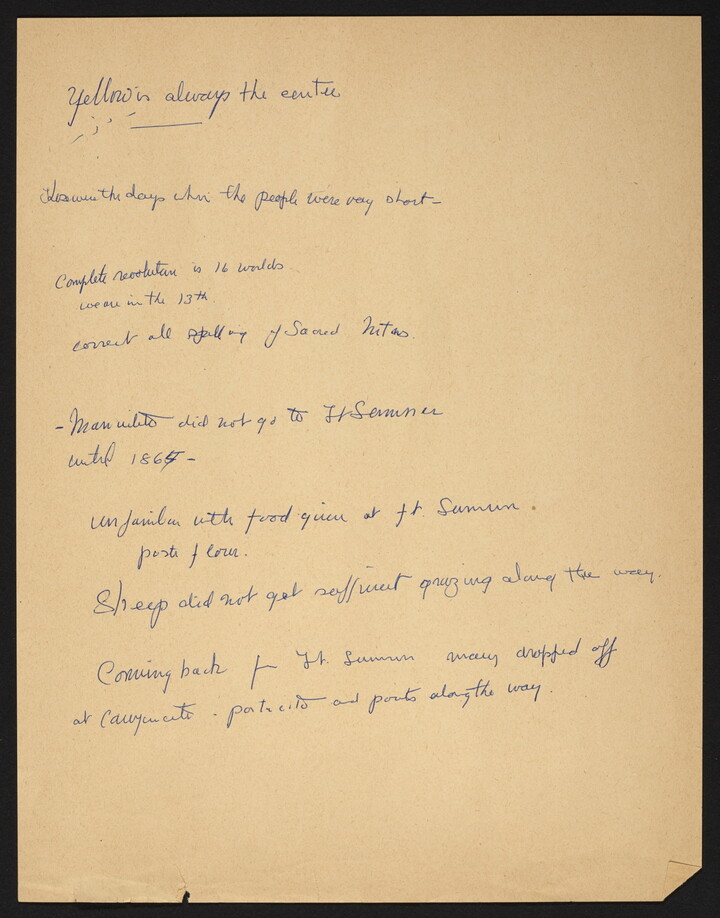 Yellow is always the centre
days when the people were very short-
Complete revolution is 16 worlds
we are in the 13th.
correct all spelling of Sacred Mtns.
- Manuelito did not go to Ft Sumner
until 1865 -
unfamiliar with food given at ft. Sumner
paste flour.
Sheep did not get sufficient grazing along the way.
Coming back fr Ft. Sumner many dropped off
at Canyoncito - and points along the way.